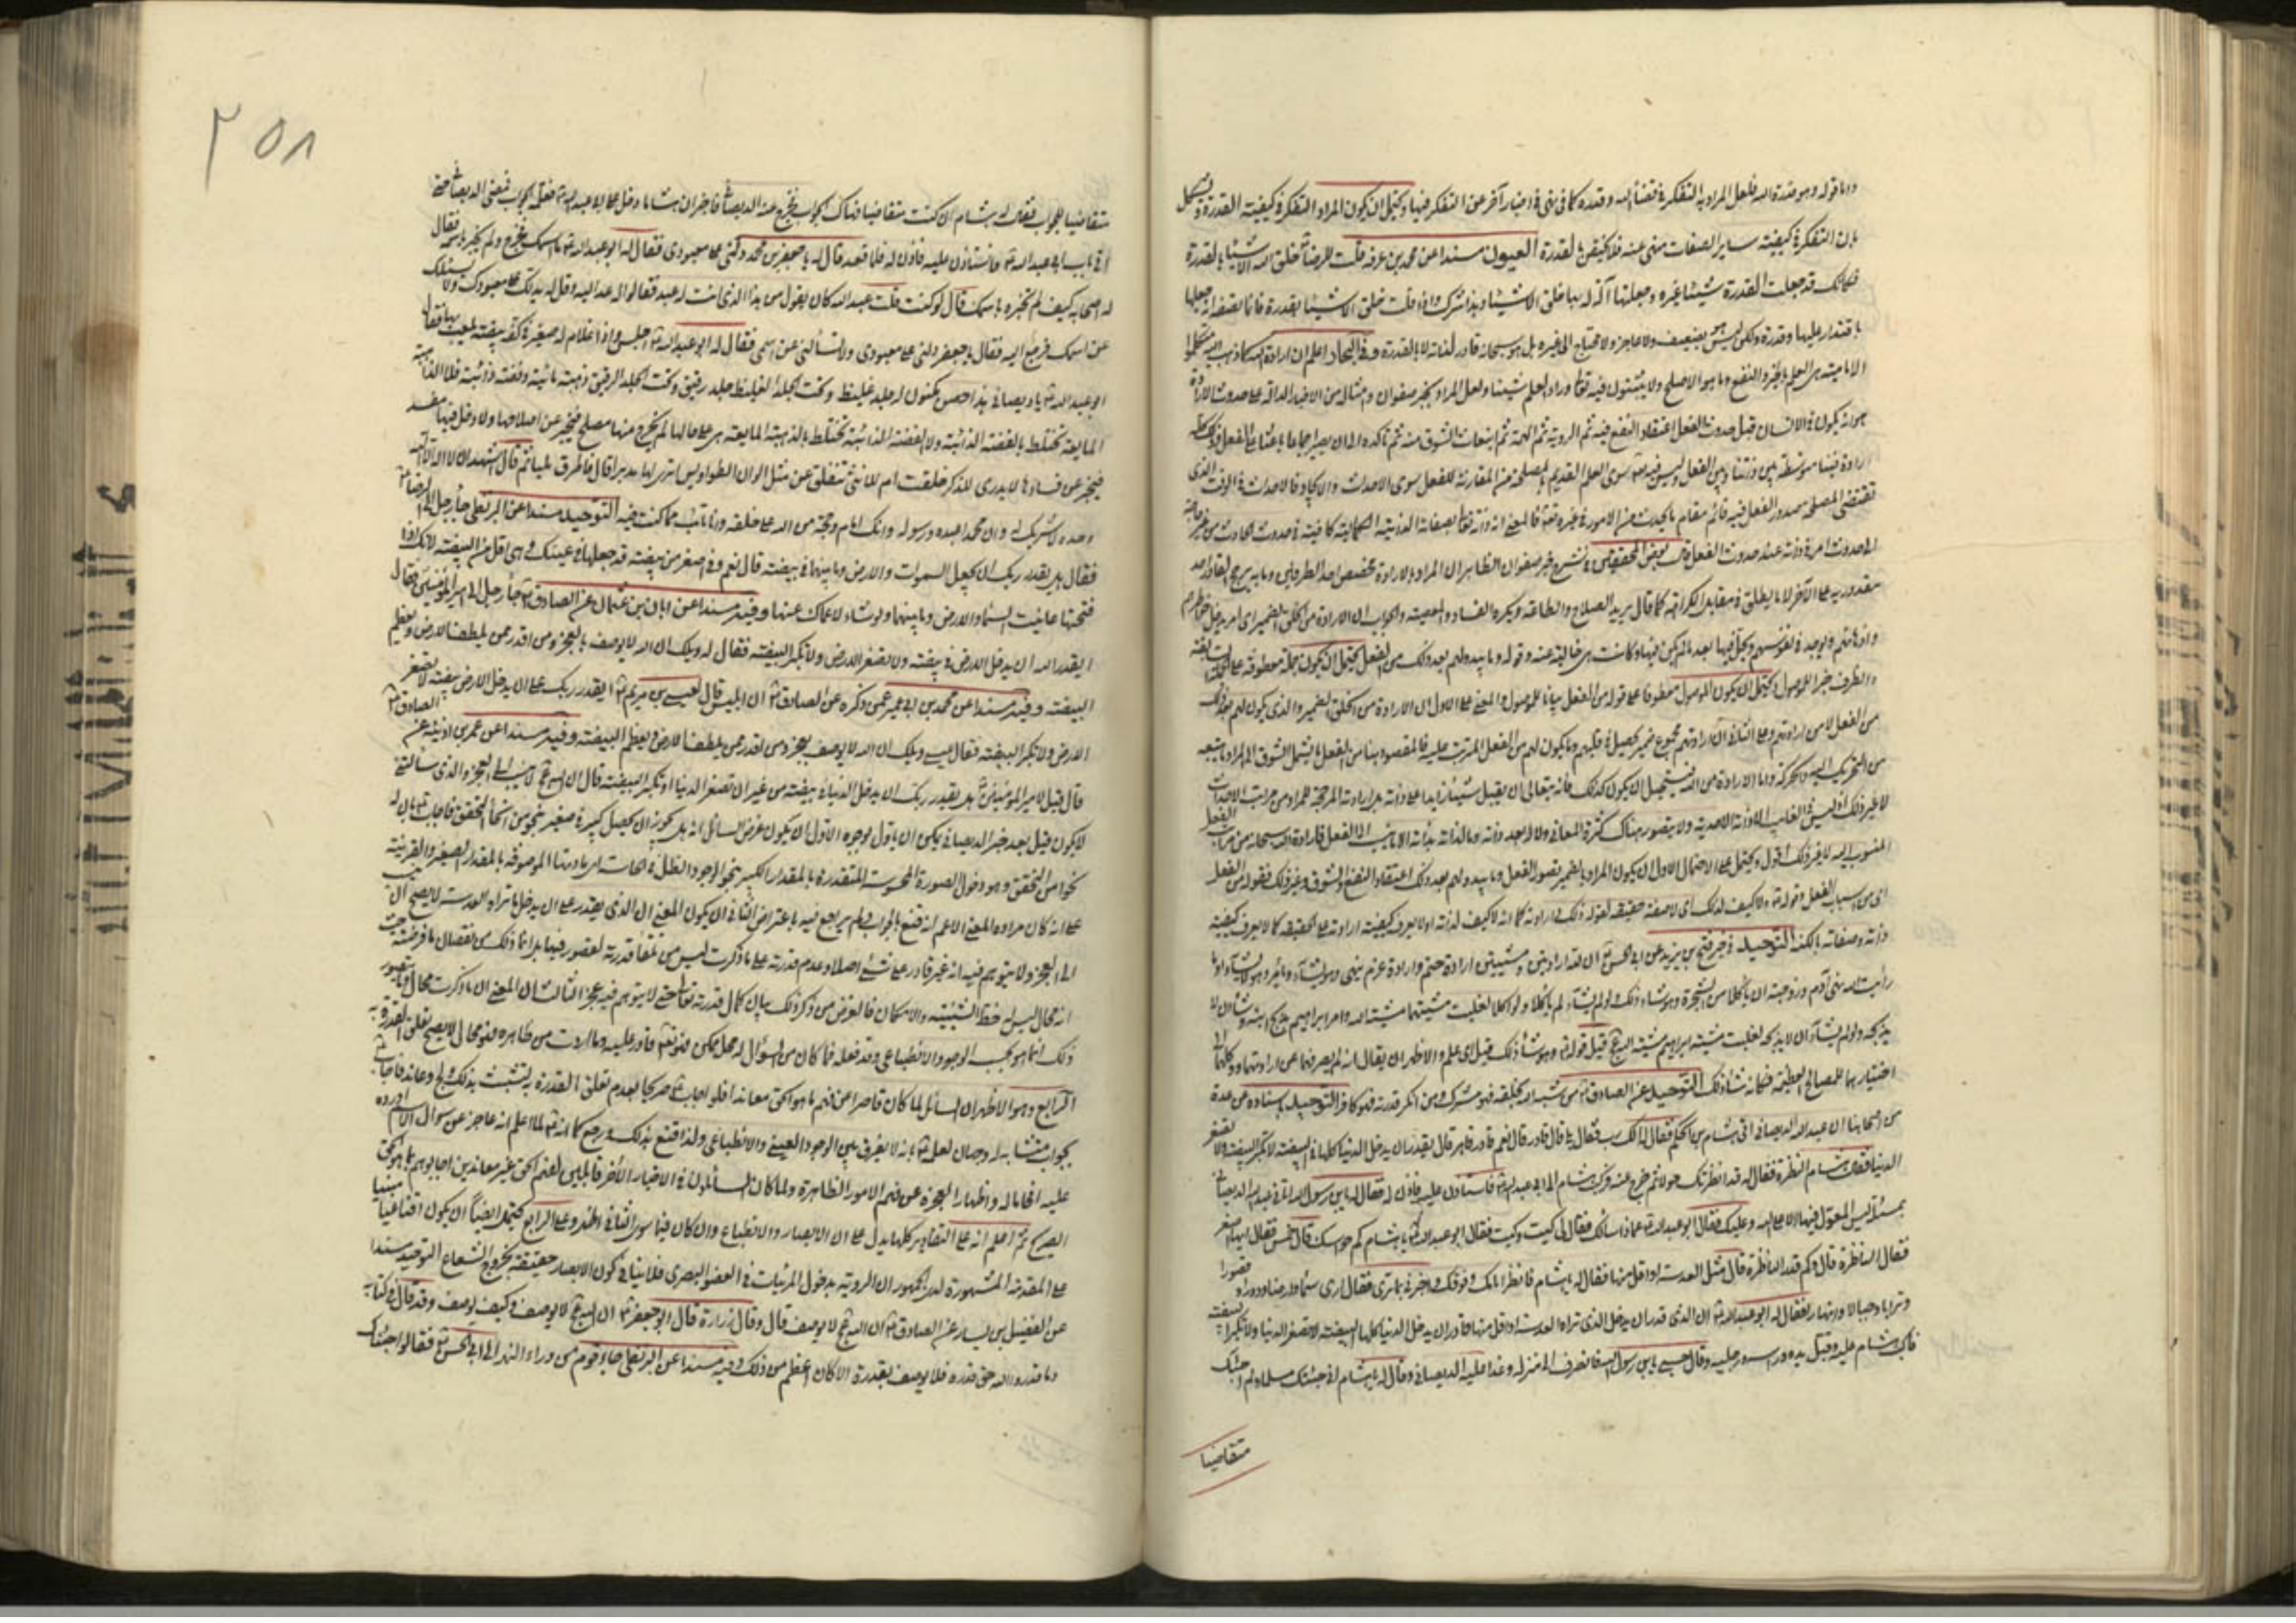 واما قوله وهو قدرة الله فلعل المراد به التفكر في قضاء الله وقدره كما في نهي في اخبار آخر عن التفكر فيها ويحتمل ان يكون المراد التفكر في كيفية القدرة و يشكل
بان التفكر في كيفية ساير الصفات منهي عنه فلا يختص بالقدرة العيون مسندا عن محمد بن عرفه قلت للرضا ع خلق الله الاشياء بالقدرة
فكانك قد جعلت القدرة شيئا غيره وجعلتها آلة له بها خلق الاشياء وهذا شرك واذا قلت خلق الاشياء بقدرة فانما تصفه انه جعلها
باقتدار عليها وقدرة ولكن ليس هو بضعيف ولا عاجز ولا محتاج الى غيره بل هو سبحانه قادر لذاته لا بالقدرة وفي البحار اعلم ان ارادة الله كما ذهب اليه متكلموا
الامامية هي العلم بالخير والنفع وما هو الاصلح ولا يثبتون فيه تعالى وراء العلم شيئا ولعل المراد بخبر صفوان وامثاله من الاخبار الدالة على حدوث الارادة
هو انه يكون في الانسان قبل حدوث الفعل اعتقاد النفع فيه ثم الروية ثم الهمة ثم انبعاث الشوق منه ثم تأكده الى ان يصير اجماعا باعثا على الفعل وذلك كله
ارادة فينا متوسطة بين ذاتنا وبين الفعل وليس فيه تعالى سوى العلم القديم بالمصلحة من المقارنة للفعل سوى الاحداث والايجاد فالاحداث في الوقت الذي
تقتضي المصلحة صدور الفعل فيه قائم مقام ما يحدث من الامور في غيره تعالى فالمعنى انه ذاته تعالى بصفاته الذاتية الكمالية كافية في حدوث الحادث من غير حاجة
الى حدوث امر في ذاته عند حدوث الفعل قال بعض المحققين في شرح خبر صفوان الظاهر ان المراد بالارادة مخصص احد الطرفين وما به يرجح القادر احد
مقدوريه على الآخر لا ما يطلق في مقابل الكراهة كما يقال يريد الصلاح والطاعة ويكره الفساد والمعصية والجواب ان الارادة من الخلق الضمير اي امر يدخل خواطرهم
واذهانهم ويوجد في نفوسهم ويحل فيها بعد ما لم يكن فيها وكانت هي خالية عنه وقوله وما يبدو لهم بعد ذلك من الفعل يحتمل ان يكون جملة معطوفة على الجملة السابقة
والظرف خبرا للموصول ويحتمل ان يكون الموصول معطوفا على قوله من الفعل بيانا للموصول والمعنى على الاول ان الارادة من الخلق الضمير والذي يكون لهم بعد ذلك
من الفعل لا من ارادتهم وعلى الثاني ان ارادتهم مجموع ضمير يحصل في قلبهم وما يكون لهم من الفعل المترتب عليه فالمقصود هنا من الفعل ما يشمل الشوق الى المراد وما يتبعه
من التحريك اليه والحركة واما الارادة من الله فيستحيل ان يكون كذلك فانه يتعالى ان يقبل شيئا زايدا على ذاته بل ارادته المرجحة للمراد من مراتب الاحداث
لا غير ذلك اذ ليس في الغائب الا ذاته الاحدية ولا يتصور هناك كثرة المعاني ولا له بعد ذاته وما لذاته بذاته الا ما ينسب الى الفعل فارادة الله سبحانه من مراتب الفعل
المنسوب اليه لا غير ذلك اقول ويحتمل على الاحتمال الاول ان يكون المراد بالضمير تصور الفعل وما يبدو لهم بعد ذلك اعتقاد النفع والشوق وغير ذلك فقوله من الفعل
اي من اسباب الفعل وقوله ع ولا كيف لذلك اي لا صفة حقيقة لقوله ذلك وارادته كما انه لا كيف لذاته او لا يعرف كيفية ارادته على الحقيقة كما لا يعرف كيفية
ذاته وصفاته بالكنه التوحيد في خبر فتح بن يزيد عن ابي الحسن ع ان لله ارادتين ومشيتين ارادة حتم وارادة عزم ينهى وهو يشاء ويأمر وهو لا يشاء او ما
رأيت الله نهى آدم وزوجته ان ياكلا من الشجرة وهو شاء ذلك ولو لم يشاء لم ياكلا ولو اكلا لغلبت مشيتهما مشية الله وامر ابراهيم بذبح ابنه وشاء ان لا
يذبحه ولو لم يشاء ان لا يذبحه لغلبت مشية ابراهيم مشية الله عز وجل قيل قوله ع وهو شاء ذلك قيل اي علم والاظهر ان يقال انه لم يصرفهما عن ارادتهما ووكلهما الى
اختيارهما للمصالح العظيمة فكانه شاء ذلك التوحيد عن الصادق ع من شبه الله بخلقه فهو مشرك ومن انكر قدرته فهو كافر التوحيد باسناده عن عدة
من اصحابنا ان عبد الله الديصاني اتى هشام بن الحكم فقال له الك رب فقال بلى قال قادر قال نعم قادر قاهر قال يقدر ان يدخل الدنيا كلها في البيضة لا تكبر البيضة ولا تصغر
الدنيا فقال هشام النظرة فقال له قد انظرتك حولا ثم خرج عنه فركب هشام الى ابي عبد الله ع فاستأذن عليه فاذن له فقال له يا بن رسول الله اتاني عبد الله الديصاني
بمسئلة ليس المعول فيها الا على الله وعليك فقال ابو عبد الله ع عما ذا سالك فقال لي كيت وكيت فقال ابو عبد الله ع يا هشام كم حواسك قال خمس فقال ايها اصغر
فقال الناظرة قال وكم قدر الناظرة قال مثل العدسة او اقل منها فقال له يا هشام فانظر امامك وفوقك واخبرني بما ترى فقال ارى سماء وارضا ودورا و قصورا
وترابا وجبالا وانهارا فقال له ابو عبد الله ع ان الذي قدر ان يدخل الذي تراه العدسة او اقل منها قادر ان يدخل الدنيا كلها البيضة لا تصغر الدنيا ولا تكبر البيضة
فاكب هشام عليه وقبل يديه ورأسه ورجليه وقال حسبي يا بن رسول الله فانصرف الى منزله وغدا عليه الديصاني وقال له يا هشام اني جئتك مسلما ولم اجئك
متقاضيا
٢٥٨
متقاضيا للجواب فقال له هشام ان كنت متقاضيا فهاك الجواب فخرج عنه الديصاني فاخبر ان هشاما دخل على ابي عبد الله ع فعلمه الجواب فمضى الديصاني حتى
اتى باب ابي عبد الله ع فاستأذن عليه فاذن له فلما قعد قال له يا جعفر بن محمد دلني على معبودي فقال له ابو عبد الله ع ما اسمك فخرج ولم يخبره باسمه فقال
له اصحابه كيف لم تخبره باسمك قال لو كنت قلت عبد الله كان يقول من هذا الذي انت له عبد فقالوا له عد اليه وقل له يدلك على معبودك ولا يسئلك
عن اسمك فرجع اليه فقال يا جعفر دلني على معبودي ولا تسألني عن اسمي فقال له ابو عبد الله ع اجلس واذا غلام له صغير في كفه بيضة يلعب بها فقال
ابو عبد الله ع يا ديصاني هذا حصن مكنون له جلد غليظ وتحت الجلد الغليظ جلد رقيق وتحت الجلد الرقيق ذهبة مائعة وفضة ذائبة فلا الذهبة
المايعة تختلط بالفضة الذائبة ولا الفضة الذائبة تختلط بالذهبة المايعة هي على حالها لم يخرج منها مصلح فيخبر عن اصلاحها ولا دخل فيها مفسد
فيخبر عن فسادها لا يدرى للذكر خلقت ام للانثى تنفلق عن مثل الوان الطواويس اترى لها مدبرا قال فاطرق مليا ثم قال اشهد ان لا اله الا الله
وحده لا شريك له وان محمدا عبده ورسوله وانك امام وحجة من الله على خلقه وانا تائب مما كنت فيه التوحيد مسندا عن البزنطي جاء رجل الى الرضا ع
فقال هل يقدر ربك ان يجعل السموات والارض وما بينهما في بيضة قال نعم وفي اصغر من بيضة قد جعلها في عينك وهي اقل من البيضة لانك اذا
فتحتها عاينت السماء والارض وما بينهما ولو شاء لاعماك عنها وفيه مسندا عن ابان بن عثمان عن الصادق ع جاء رجل الى امير المؤمنين ع فقال
ايقدر الله ان يدخل الارض في بيضة ولا تصغر الارض ولا تكبر البيضة فقال له ويلك ان الله لا يوصف بالعجز ومن اقدر ممن يلطف الارض ويعظم
البيضة وفيه مسندا عن محمد بن ابي عمير عمن ذكره عن الصادق ع ان ابليس قال لعيسى بن مريم ع ايقدر ربك على ان يدخل الارض بيضة لا تصغر
الارض ولا تكبر البيضة فقال عيسى ويلك ان الله لا يوصف بعجز ومن اقدر ممن يلطف الارض ويعظم البيضة وفيه مسندا عن عمر بن اذينة عن الصادق ع
قال قيل لامير المؤمنين ع هل يقدر ربك ان يدخل الدنيا في بيضة من غير ان تصغر الدنيا او تكبر البيضة قال ان الله عز وجل لا ينسب الى العجز والذي سالتني
لا يكون قيل بعد خبر الديصاني يمكن ان ياول بوجوه الاول ان يكون غرض السائل انه هل يجوز ان يحصل كبير في صغير بنحو من انحاء التحقق فاجاب ع بان له
نحوا من التحقق وهو دخول الصورة المحسوسة المتقدرة بالمقدار الكبير بنحو الوجود الظلي في الحاسة اي مادتها الموصوفة بالمقدار الصغير والقرينة
على انه كان مراده المعنى الاعم انه قنع بالجواب ولم يراجع فيه باعتراض الثاني ان يكون المعنى ان الذي يقدر على ان يدخل ما تراه العدسة لا يصح ان ينسب
الى العجز ولا يتوهم فيه انه غير قادر على شيء اصلا وعدم قدرته على ما ذكرت ليس من تلقاء قدرته لقصور فيها بل انما ذلك من نقصان ما فرضته حيث
انه محال ليس له حظ الشيئية والامكان فالغرض من ذكر ذلك بيان كمال قدرته تعالى حتى لا يتوهم فيه عجز الثالث ان المعنى ان ما ذكرت محال وما يتصور
ذلك انما هو بحسب الوجود الانطباعي وقد فعله فما كان من السؤال له محمل ممكن فهو تعالى قادر عليه وما اردت من ظاهره فهو محال لا يصح تعلق القدرة به
الرابع وهو الاظهر ان السائل لما كان قاصرا عن فهم ما هو الحق معاندا فلو اجاب ع صريحا بعدم تعلق القدرة به لتشبث بذلك ولج وعاند فاجاب ع
بجواب متشابه له وجهان لعلمه ع بانه لا يفرق بين الوجود العيني والانطباعي ولذا قنع بذلك ورجع كما انه ع لما علم انه عاجز عن سوال الاسم اورده
عليه افحاما له واظهارا لعجزه عن فهم الامور الظاهرة ولما كان السائلون في الاخبار الأخر قابلين لفهم الحق غير معاندين اجابوهم بما هو الحق
الصريح ثم اعلم انه على التقادير كلها يدل على ان الابصار بالانطباع وان كان فيما سوى الثاني اظهر وعلى الرابع يحتمل ايضا ان يكون اقناعيا مبنيا
على المقدمة المشهورة لدى الجمهور ان الروية بدخول المرئيات في العضو البصري فلا ينافي كون الابصار حقيقة بخروج الشعاع التوحيد مسندا
عن الفضيل بن يسار عن الصادق ع ان الله عز وجل لا يوصف قال وقال زرارة قال ابو جعفر ع ان الله عز وجل لا يوصف وكيف يوصف وقد قال في كتابه
وما قدروا الله حق قدره فلا يوصف بقدرة الا كان اعظم من ذلك وفيه مسندا عن البزنطي جاء قوم من وراء النهر الى ابي الحسن ع فقالوا جئناك